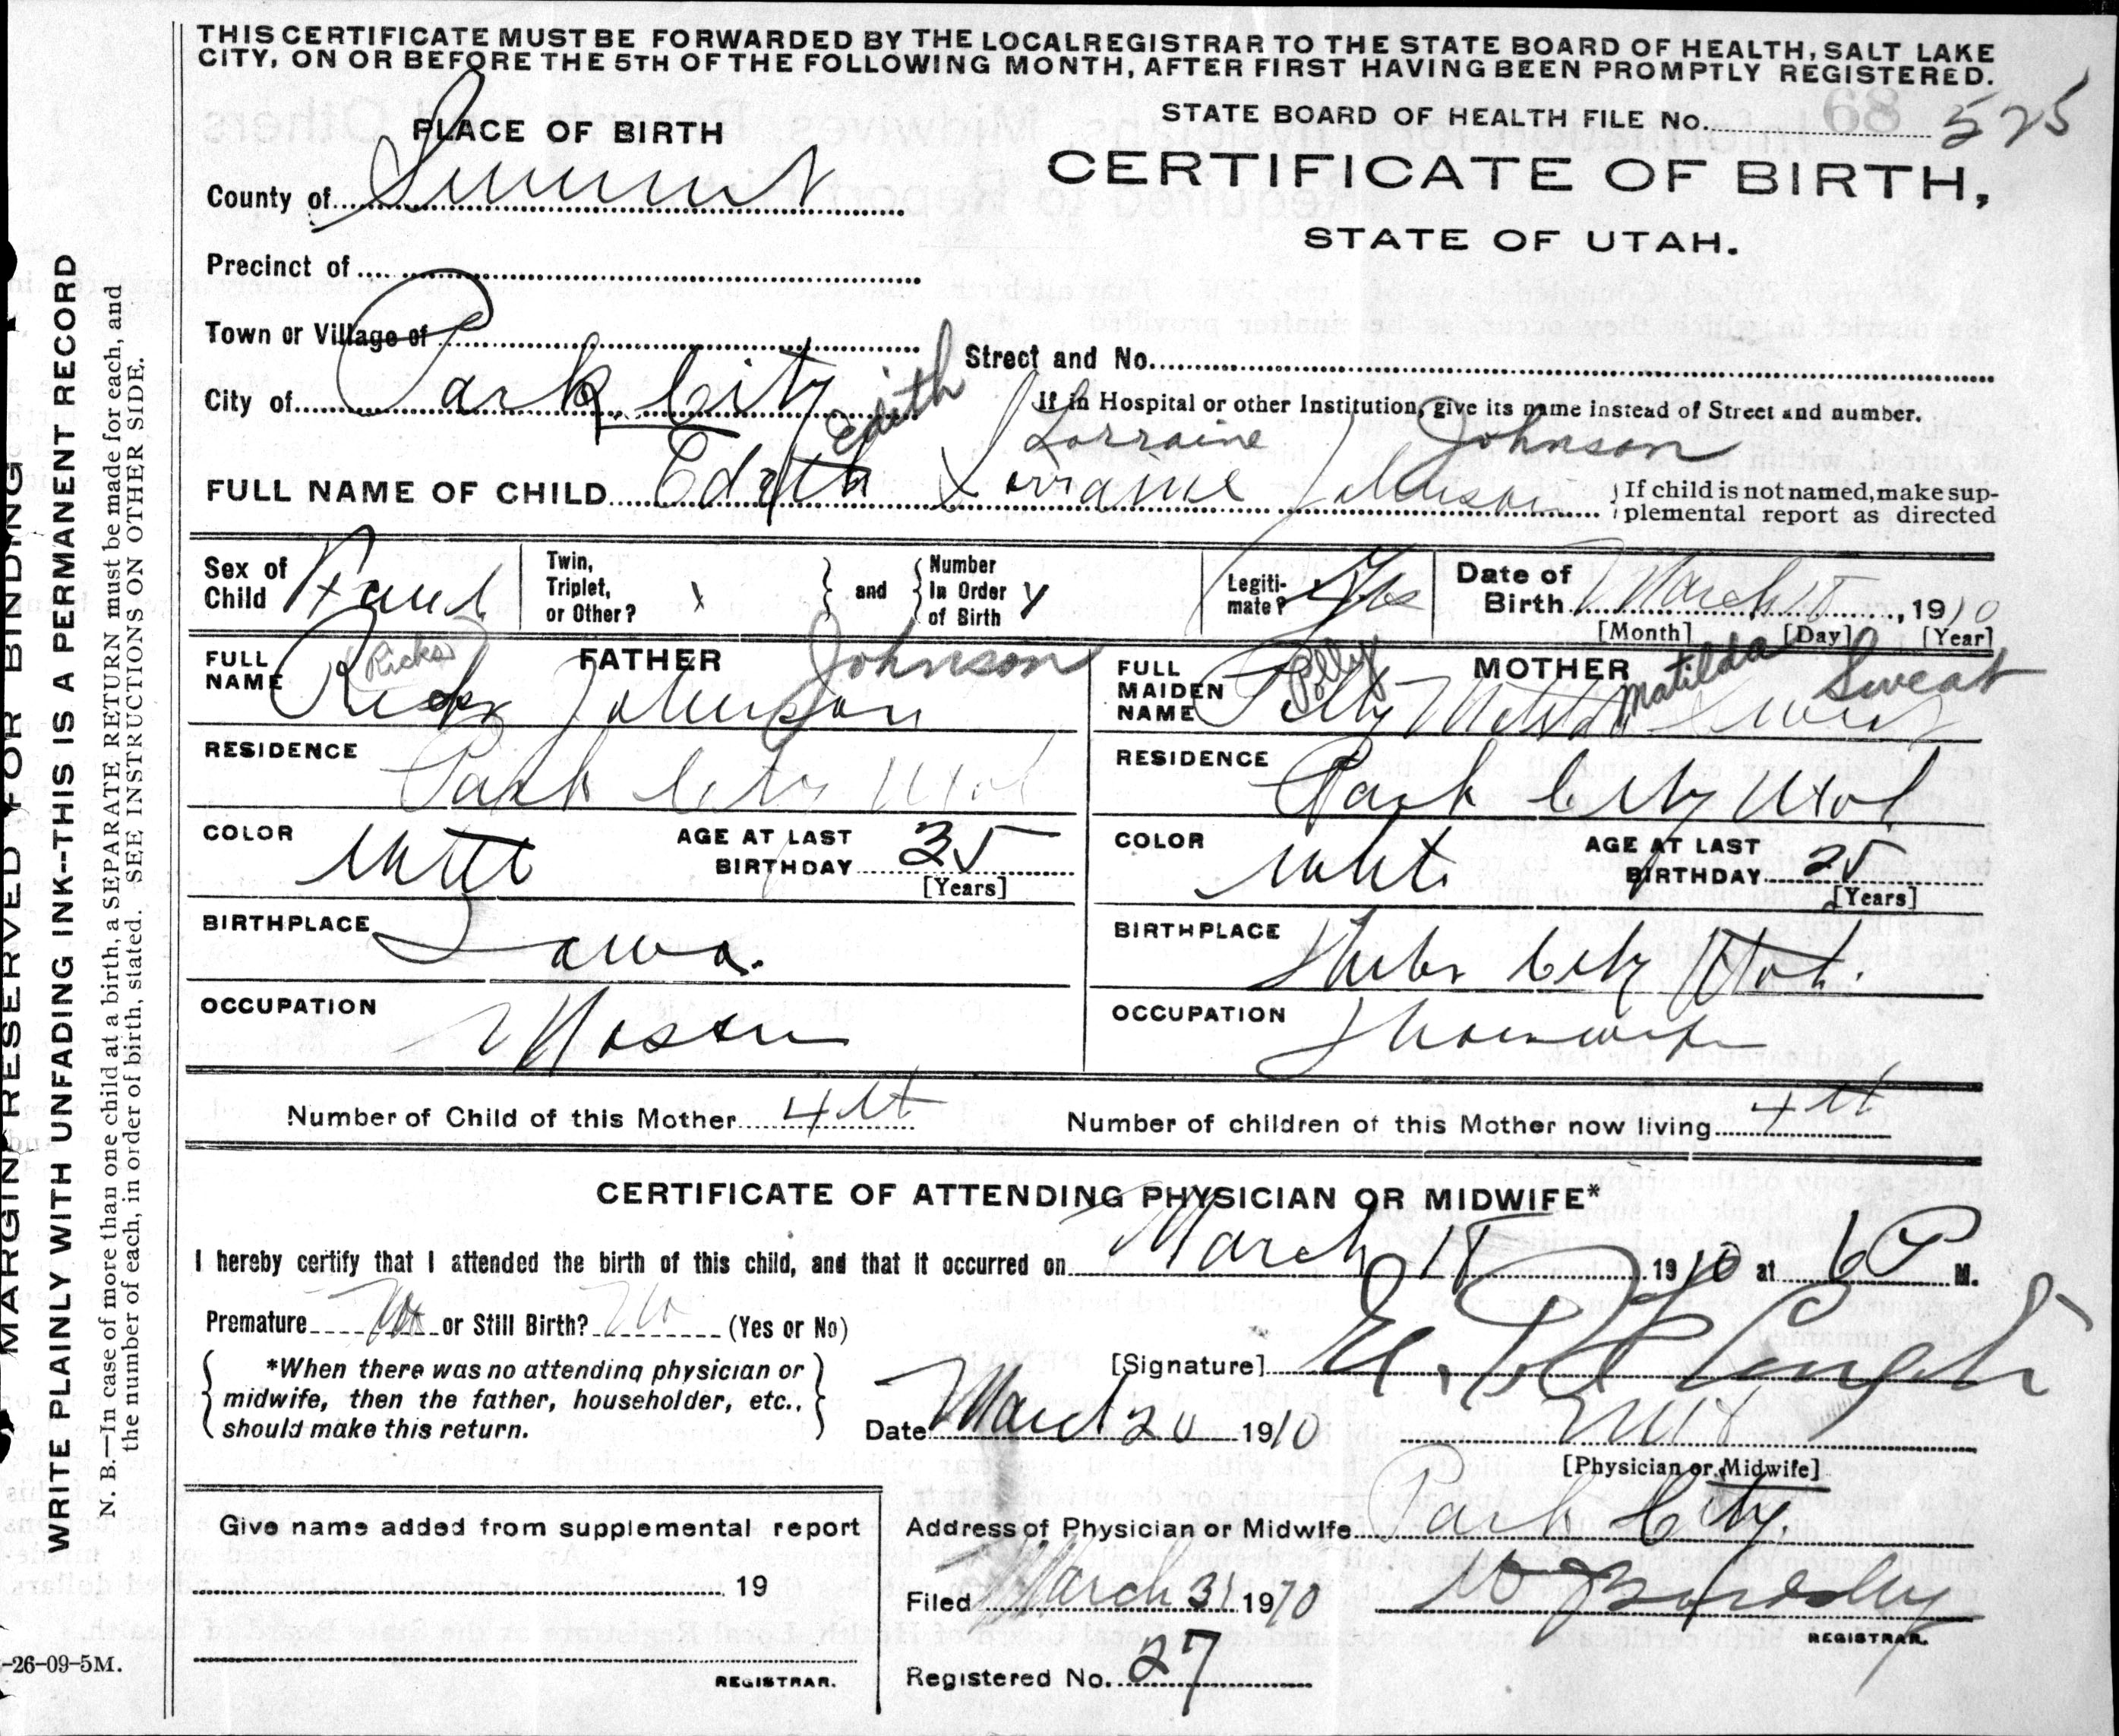 THIS CERTIFICATE MUST BE FORWARDED BY THE LOCAL REGISTRAR TO THE STATE BOARD OF HEALTH, SALT LAKE
CITY, ON OR BEFORE THE 5TH OF THE FOLLOWING MONTH, AFTER FIRST HAVING BEEN PROMPTLY REGISTERED.
STATE BOARD OF HEALTH FILE No. 68 525
PLACE OF BIRTH
CERTIFICATE OF BIRTH,
STATE OF UTAH.
County of Summit
Precinct of
Town or Village of
Street and No.
City of Park City
If in Hospital or other Institution, give its name instead of Street and number.
Edith Lorraine Johnson
FULL NAME OF CHILD Edith Lorraine Johnson
If child is not named, make sup-
plemental report as directed
Sex of Child
Twin, Triplet, or Other?
and
Number In Order of Birth
Legiti-mate? Yes
Date of Birth March 15, 1910
[Month] [Day] [Year]
FATHER
FULL NAME Ricks Johnson
(Ricks) Johnson
RESIDENCE Park City
COLOR White
AGE AT LAST BIRTHDAY 35
[Years]
BIRTHPLACE Iowa.
OCCUPATION Mason
MOTHER
FULL MAIDEN NAME Polly Matilda Sweat
Polly Matilda Sweat
RESIDENCE Park City
COLOR White
AGE AT LAST BIRTHDAY 25
[Years]
BIRTHPLACE Heber City
OCCUPATION Housewife
Number of Child of this Mother 4
Number of children of this Mother now living 4
CERTIFICATE OF ATTENDING PHYSICIAN OR MIDWIFE*
I hereby certify that I attended the birth of this child, and that it occurred on March 15 1910 at 6 P M.
Premature No or Still Birth? No (Yes or No)
*When there was no attending physician or
midwife, then the father, householder, etc.,
should make this return.
[Signature]
Date March 20 1910
[Physician or Midwife]
Give name added from supplemental report
19
REGISTRAR.
Address of Physician or Midwife Park City.
Filed March 31 1910
REGISTRAR.
Registered No. 27
MARGIN RESERVED FOR BINDING
WRITE PLAINLY WITH UNFADING INK--THIS IS A PERMANENT RECORD
N. B.—In case of more than one child at a birth, a SEPARATE RETURN must be made for each, and
the number of each, in order of birth, stated. SEE INSTRUCTIONS ON OTHER SIDE.
-26-09-5M.